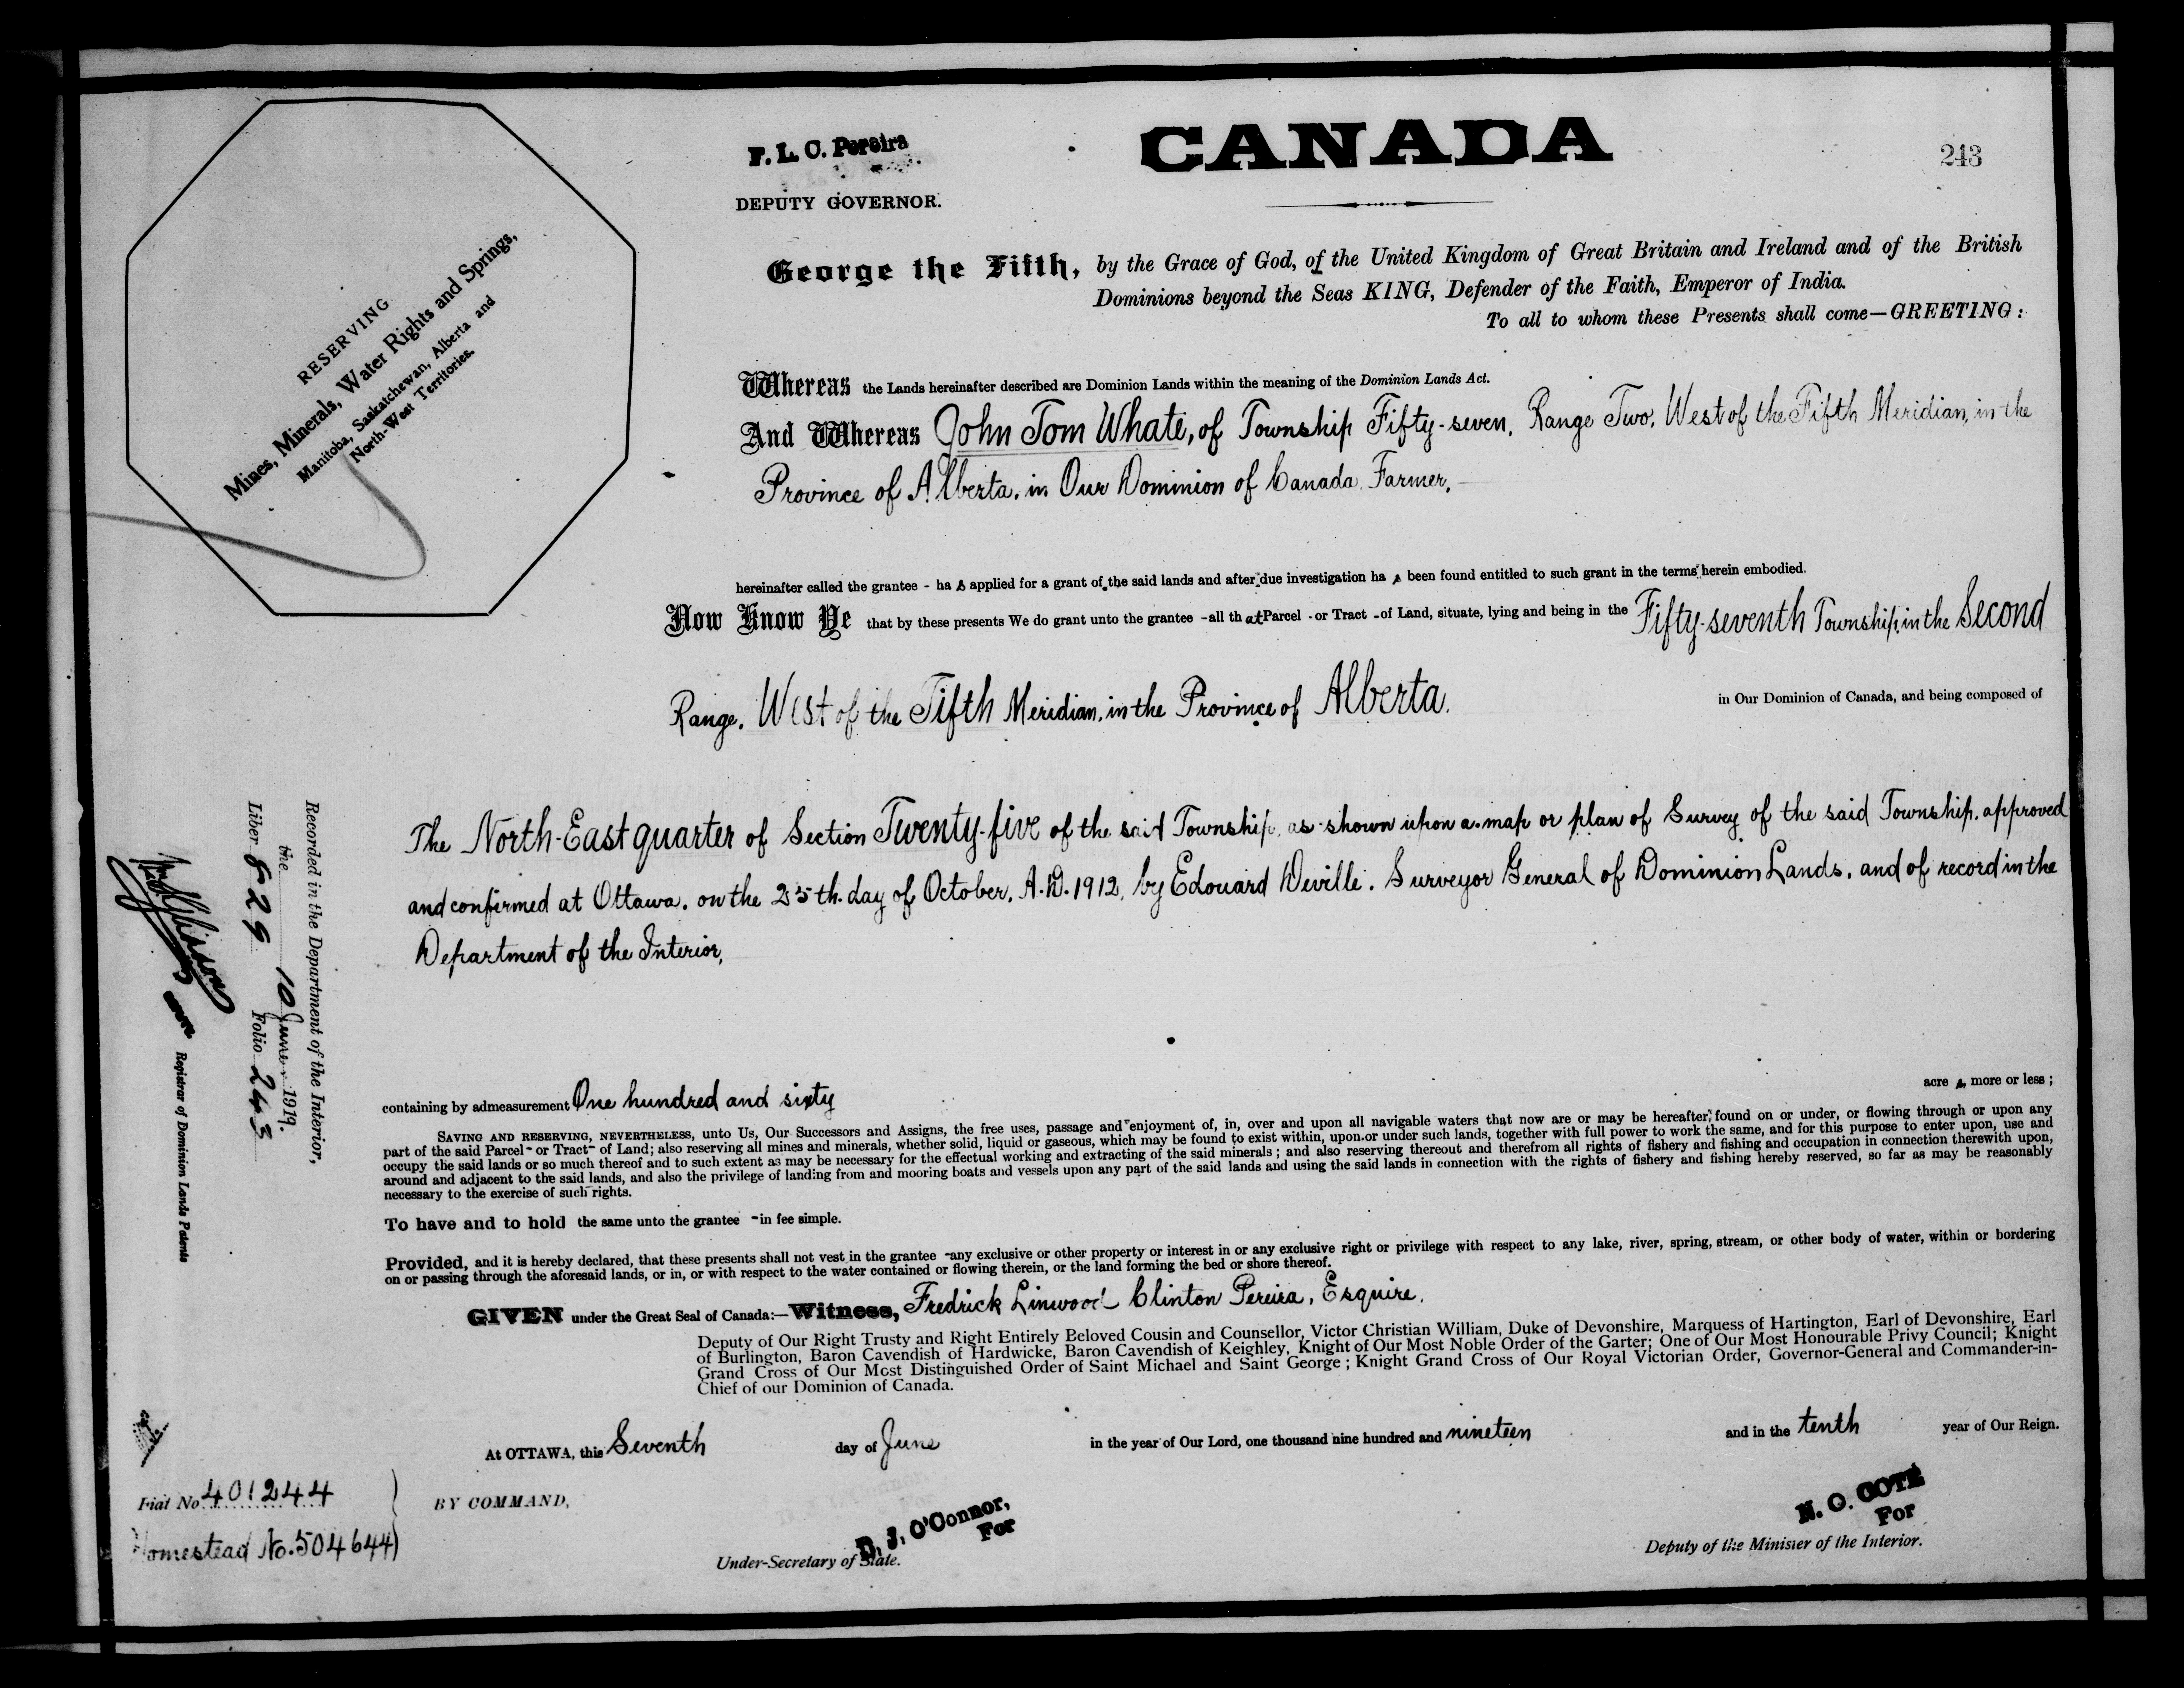 F. L. C. Pereira
DEPUTY GOVERNOR.
CANADA
243
RESERVING
Mines, Minerals, Water Rights and Springs,
Manitoba, Saskatchewan, Alberta and
North-West Territories.
George the Fifth, by the Grace of God, of the United Kingdom of Great Britain and Ireland and of the British
Dominions beyond the Seas KING, Defender of the Faith, Emperor of India.
To all to whom these Presents shall come—GREETING:
Whereas the Lands hereinafter described are Dominion Lands within the meaning of the Dominion Lands Act.
And Whereas John Tom Whate, of Township Fifty-seven, Range Two, West of the Fifth Meridian, in the
Province of Alberta, in Our Dominion of Canada, Farmer,
hereinafter called the grantee - ha s applied for a grant of the said lands and after due investigation ha s been found entitled to such grant in the terms herein embodied.
Now Know Ye that by these presents We do grant unto the grantee - all that Parcel - or Tract - of Land, situate, lying and being in the Fifty-seventh Township, in the Second
Range, West of the Fifth Meridian, in the Province of Alberta. in Our Dominion of Canada, and being composed of
The North-East quarter of Section Twenty-five of the said Township, as shown upon a map or plan of Survey of the said Township, approved
and confirmed at Ottawa, on the 25th day of October, A.D. 1912, by Edouard Deville, Surveyor General of Dominion Lands, and of record in the
Department of the Interior,
containing by admeasurement One hundred and sixty acre s, more or less;
SAVING AND RESERVING, NEVERTHELESS, unto Us, Our Successors and Assigns, the free uses, passage and enjoyment of, in, over and upon all navigable waters that now are or may be hereafter found on or under, or flowing through or upon any
part of the said Parcel - or Tract - of Land; also reserving all mines and minerals, whether solid, liquid or gaseous, which may be found to exist within, upon or under such lands, together with full power to work the same, and for this purpose to enter upon, use and
occupy the said lands or so much thereof and to such extent as may be necessary for the effectual working and extracting of the said minerals; and also reserving thereout and therefrom all rights of fishery and fishing and occupation in connection therewith upon,
around and adjacent to the said lands, and also the privilege of landing from and mooring boats and vessels upon any part of the said lands and using the said lands in connection with the rights of fishery and fishing hereby reserved, so far as may be reasonably
necessary to the exercise of such rights.
To have and to hold the same unto the grantee - in fee simple.
Provided, and it is hereby declared, that these presents shall not vest in the grantee - any exclusive or other property or interest in or any exclusive right or privilege with respect to any lake, river, spring, stream, or other body of water, within or bordering
on or passing through the aforesaid lands, or in, or with respect to the water contained or flowing therein, or the land forming the bed or shore thereof.
GIVEN under the Great Seal of Canada:—Witness, Fredrick Linwood Clinton Pereira, Esquire,
Deputy of Our Right Trusty and Right Entirely Beloved Cousin and Counsellor, Victor Christian William, Duke of Devonshire, Marquess of Hartington, Earl of Devonshire, Earl
of Burlington, Baron Cavendish of Hardwicke, Baron Cavendish of Keighley, Knight of Our Most Noble Order of the Garter; One of Our Most Honourable Privy Council; Knight
Grand Cross of Our Most Distinguished Order of Saint Michael and Saint George; Knight Grand Cross of Our Royal Victorian Order, Governor-General and Commander-in-
Chief of our Dominion of Canada.
At OTTAWA, this Seventh day of June in the year of Our Lord, one thousand nine hundred and nineteen and in the tenth year of Our Reign.
BY COMMAND,
D. J. O'Connor,
For
Under-Secretary of State.
N. O. COTE
For
Deputy of the Minister of the Interior.
Recorded in the Department of the Interior,
the 10 June, 1919.
Liber 829 Folio 243
Registrar of Dominion Lands Patents
Fiat No 401244
Homestead No. 504644